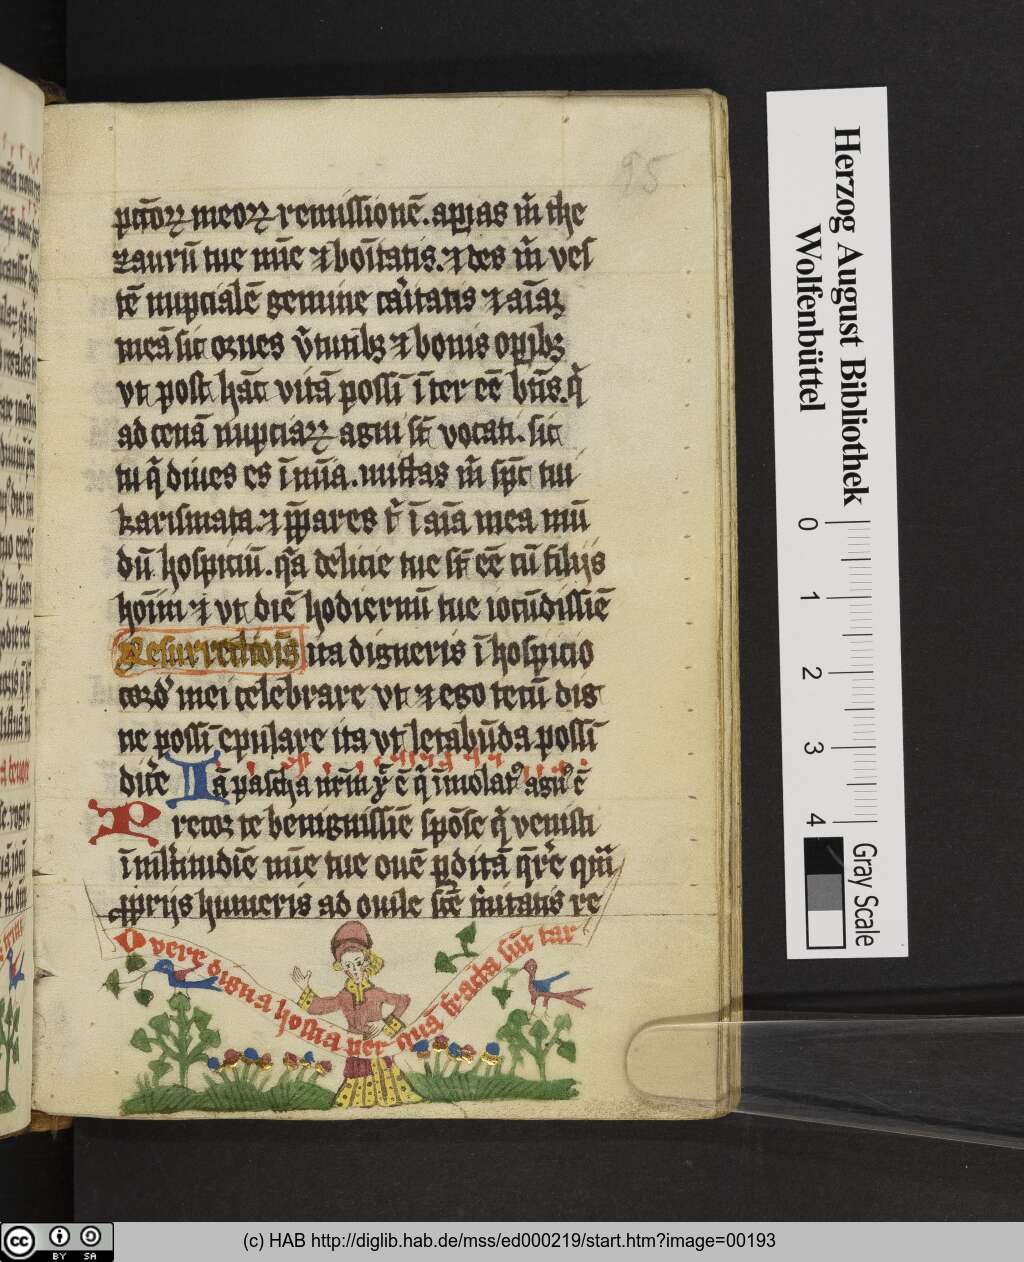 95
pctōꝝ meoꝝ remissionē. apias m̄ the
zaurū tue mīe ⁊ bonītatis. ⁊ des m̄ ves
tē nupcialē gemine caritatis ⁊ aīaꝫ
meā sic ornes v̄tutibꝫ ⁊ bonis opibꝫ
vt post hāc vitā possī īter eē btīs. q̄
ad cenā nupciaꝝ agni st̄ vocati. sic
tu q̄ diues es ī mīa. mittas m̄ spc̄ tui
karismata ⁊ p̄pares t̄ ī aīa mea mū
dū hospiciū. q̄a delicie tue st̄ eē cū filijs
hoīm ⁊ vt diē hodiernū tue iocūdissīe
Resurrectiōis ita digneris ī hospicio
cord̄ mei celebrare vt ⁊ ego tecū dig
ne possī epulare ita vt letabūda possī
dicͥe Iā pascha nr̄m xp̄ ē q̄ īmolatꝰ agnꝰ ē
Precor te benignissīe spōse q̄ venisti
ī mltitudīe mīe tue ouē pditā q̄rͤe qm̄
ꝓprijs humeris ad ouile stē re
O vere digna hostia per quā fracta sūt tar
Herzog August Bibliothek
Wolfenbüttel
0
1
2
3
4
Gray Scale
cc BY SA
(c) HAB http://diglib.hab.de/mss/ed000219/start.htm?image=00193